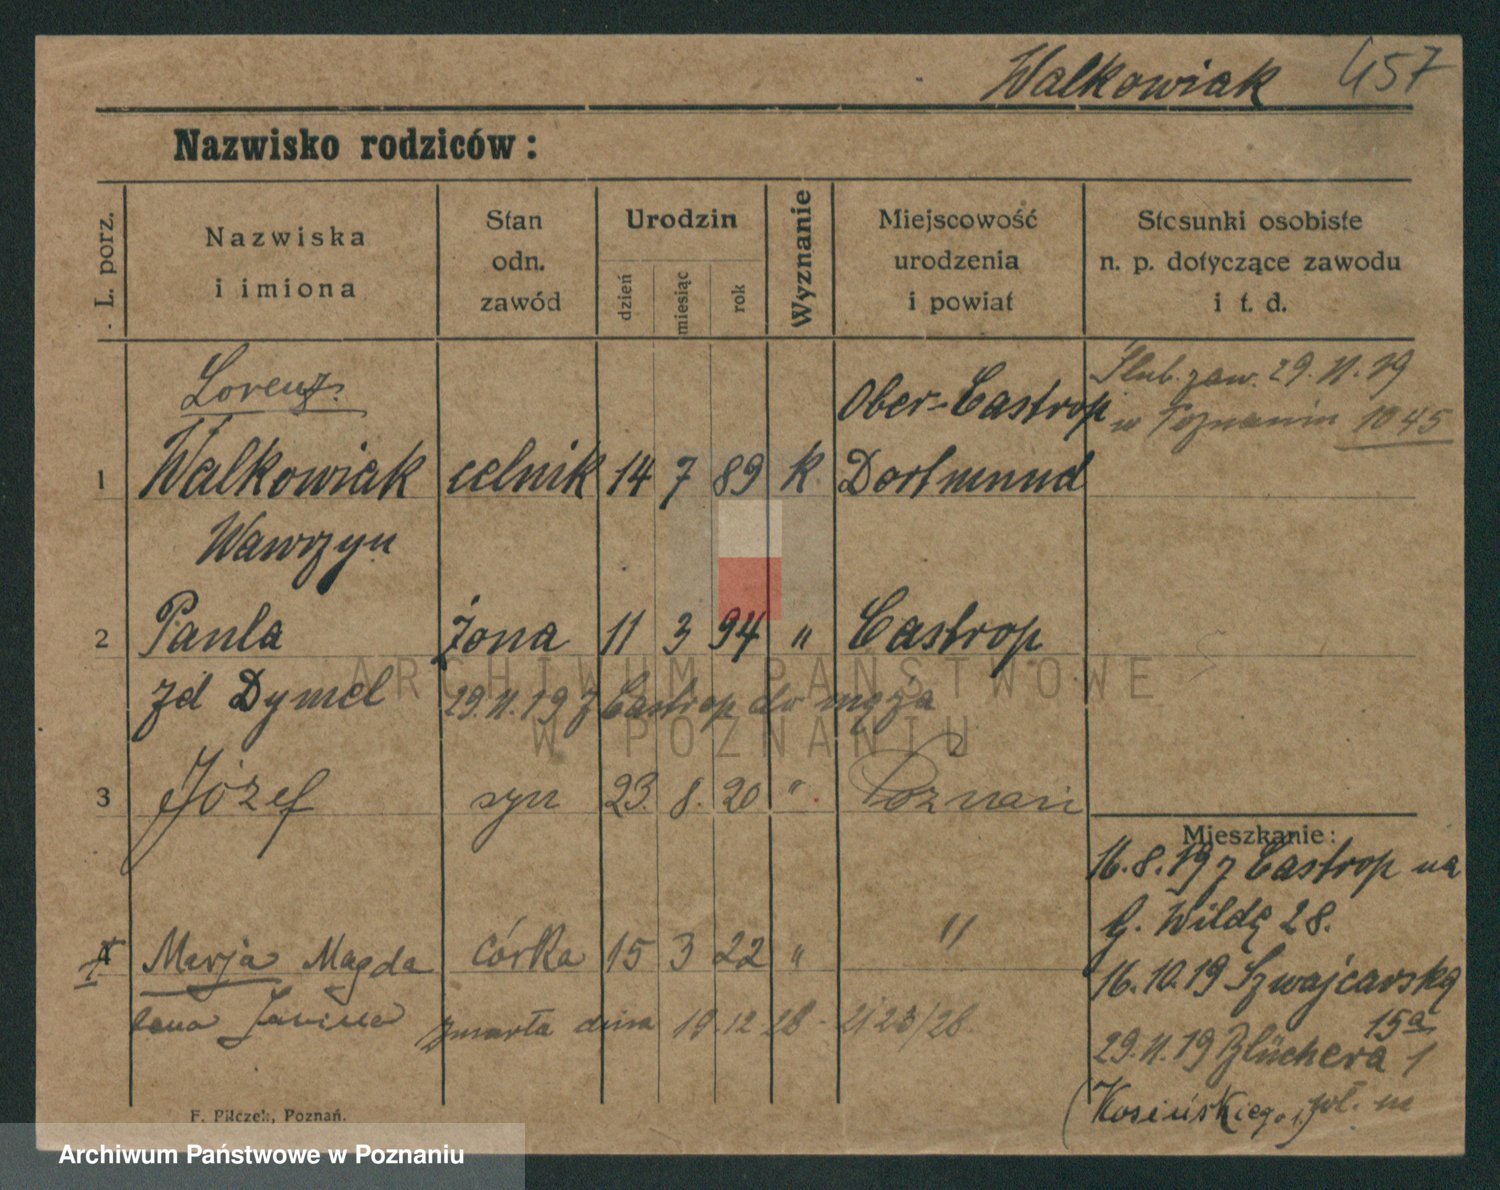 Walkowiak 457
Nazwisko rodziców:
L. porz.
Nazwiska
i imiona
Stan
odn.
zawód
Urodzin
dzień
miesiąc
rok
Wyznanie
Miejscowość
urodzenia
i powiat
Stosunki osobiste
n. p. dotyczące zawodu
i t. d.
Lorenz.
Ober-Castrop
Ślub. zaw. 29. 11. 19
w Poznaniu 1045
1 Walkowiak celnik 14 7 89 k. Dortmund
Wawrzyn
2 Paula żona 11 3 94 " Castrop
zd Dymel 29. 11. 19 z Castrop do męża
3 Józef syn 23. 8. 20 " Poznań
Mieszkanie:
16. 8. 19 z Castrop na
G. Wildę 28.
4 Marja Magda córka 15 3 22 " "
16. 10. 19 Szwajcarska
15a
Janina zmarła dnia 19. 12 28 - 2123/28
29. 11. 19 Blüchera 1
(Kosińskiego)
F. Pilczek, Poznań.
ARCHIWUM PAŃSTWOWE
W POZNANIU
Archiwum Państwowe w Poznaniu